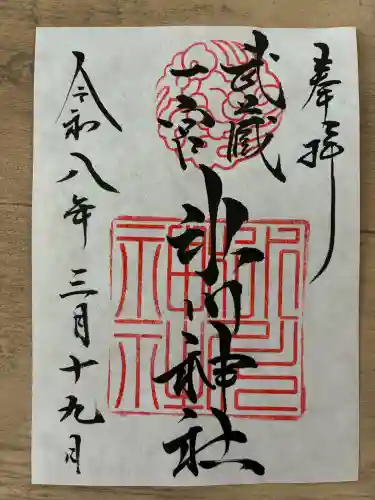 奉拝
武蔵
一宮
氷川神社
令和八年三月十九日
氷川
神社